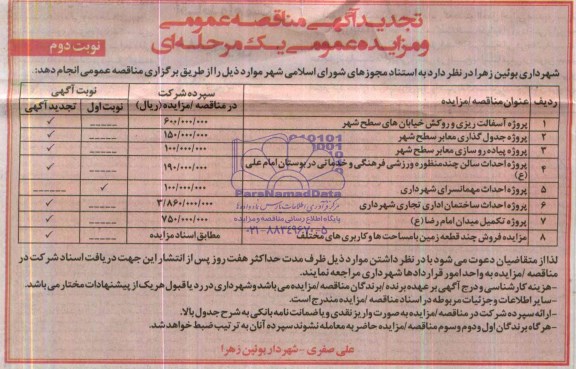 تجدیدآگهی مناقصه عمومی
ومزایده عمومی یک مرحله‌ای
نوبت دوم
شهرداری بوئین زهرا در نظر دارد به استناد مجوزهای شورای اسلامی شهر موارد ذیل را از طریق برگزاری مناقصه عمومی انجام دهد:
ردیف عنوان مناقصه/مزایده سپرده شرکت در مناقصه/مزایده (ریال) نوبت آگهی
نوبت اول تجدید آگهی
۱ پروژه آسفالت ریزی و روکش خیابان های سطح شهر ۶۰۰/۰۰۰/۰۰۰ ----- ✓
۲ پروژه جدول گذاری معابر سطح شهر ۱۵۰/۰۰۰/۰۰۰ ----- ✓
۳ پروژه پیاده رو سازی معابر سطح شهر ۱۰۰/۰۰۰/۰۰۰ ----- ✓
۴ پروژه احداث سالن چند منظوره ورزشی فرهنگی و خدماتی در بوستان امام علی (ع) ۱۹۰/۰۰۰/۰۰۰ ----- ✓
۵ پروژه احداث مهمانسرای شهرداری ۱۰۰/۰۰۰/۰۰۰ ✓ -----
۶ پروژه احداث ساختمان اداری تجاری شهرداری ۳/۸۶۰/۰۰۰/۰۰۰ ----- ✓
۷ پروژه تکمیل میدان امام رضا (ع) ۷۵۰/۰۰۰/۰۰۰ ----- ✓
۸ مزایده فروش چند قطعه زمین با مساحت ها و کاربری های مختلف مطابق اسناد مزایده ----- ✓
لذا از متقاضیان دعوت می شود با در نظر داشتن موارد ذیل ظرف مدت حداکثر هفت روز پس از انتشار این جهت دریافت اسناد شرکت در
مناقصه/مزایده به واحد امور قراردادها شهرداری مراجعه نمایند.
- هزینه کارشناسی و درج آگهی بر عهده برنده/برندگان مناقصه/مزایده می باشد و شهرداری در رد یا قبول هر یک از پیشنهادات مختار می باشد.
- سایر اطلاعات و جزئیات مربوطه در اسناد مناقصه/مزایده مندرج است.
- ارائه سپرده شرکت در مناقصه/مزایده به صورت واریز نقدی و یا ضمانت نامه بانکی به شرح جدول بالا.
- هرگاه برندگان اول و دوم و سوم مناقصه/مزایده حاضر به معامله نشوند سپرده آنان به ترتیب ضبط خواهد شد.
علی صفری - شهردار بوئین زهرا
ParaNamadData
پایگاه اطلاع رسانی مناقصه و مزایده
۰۲۱-۸۸۳۴۹۶۷۰-۵